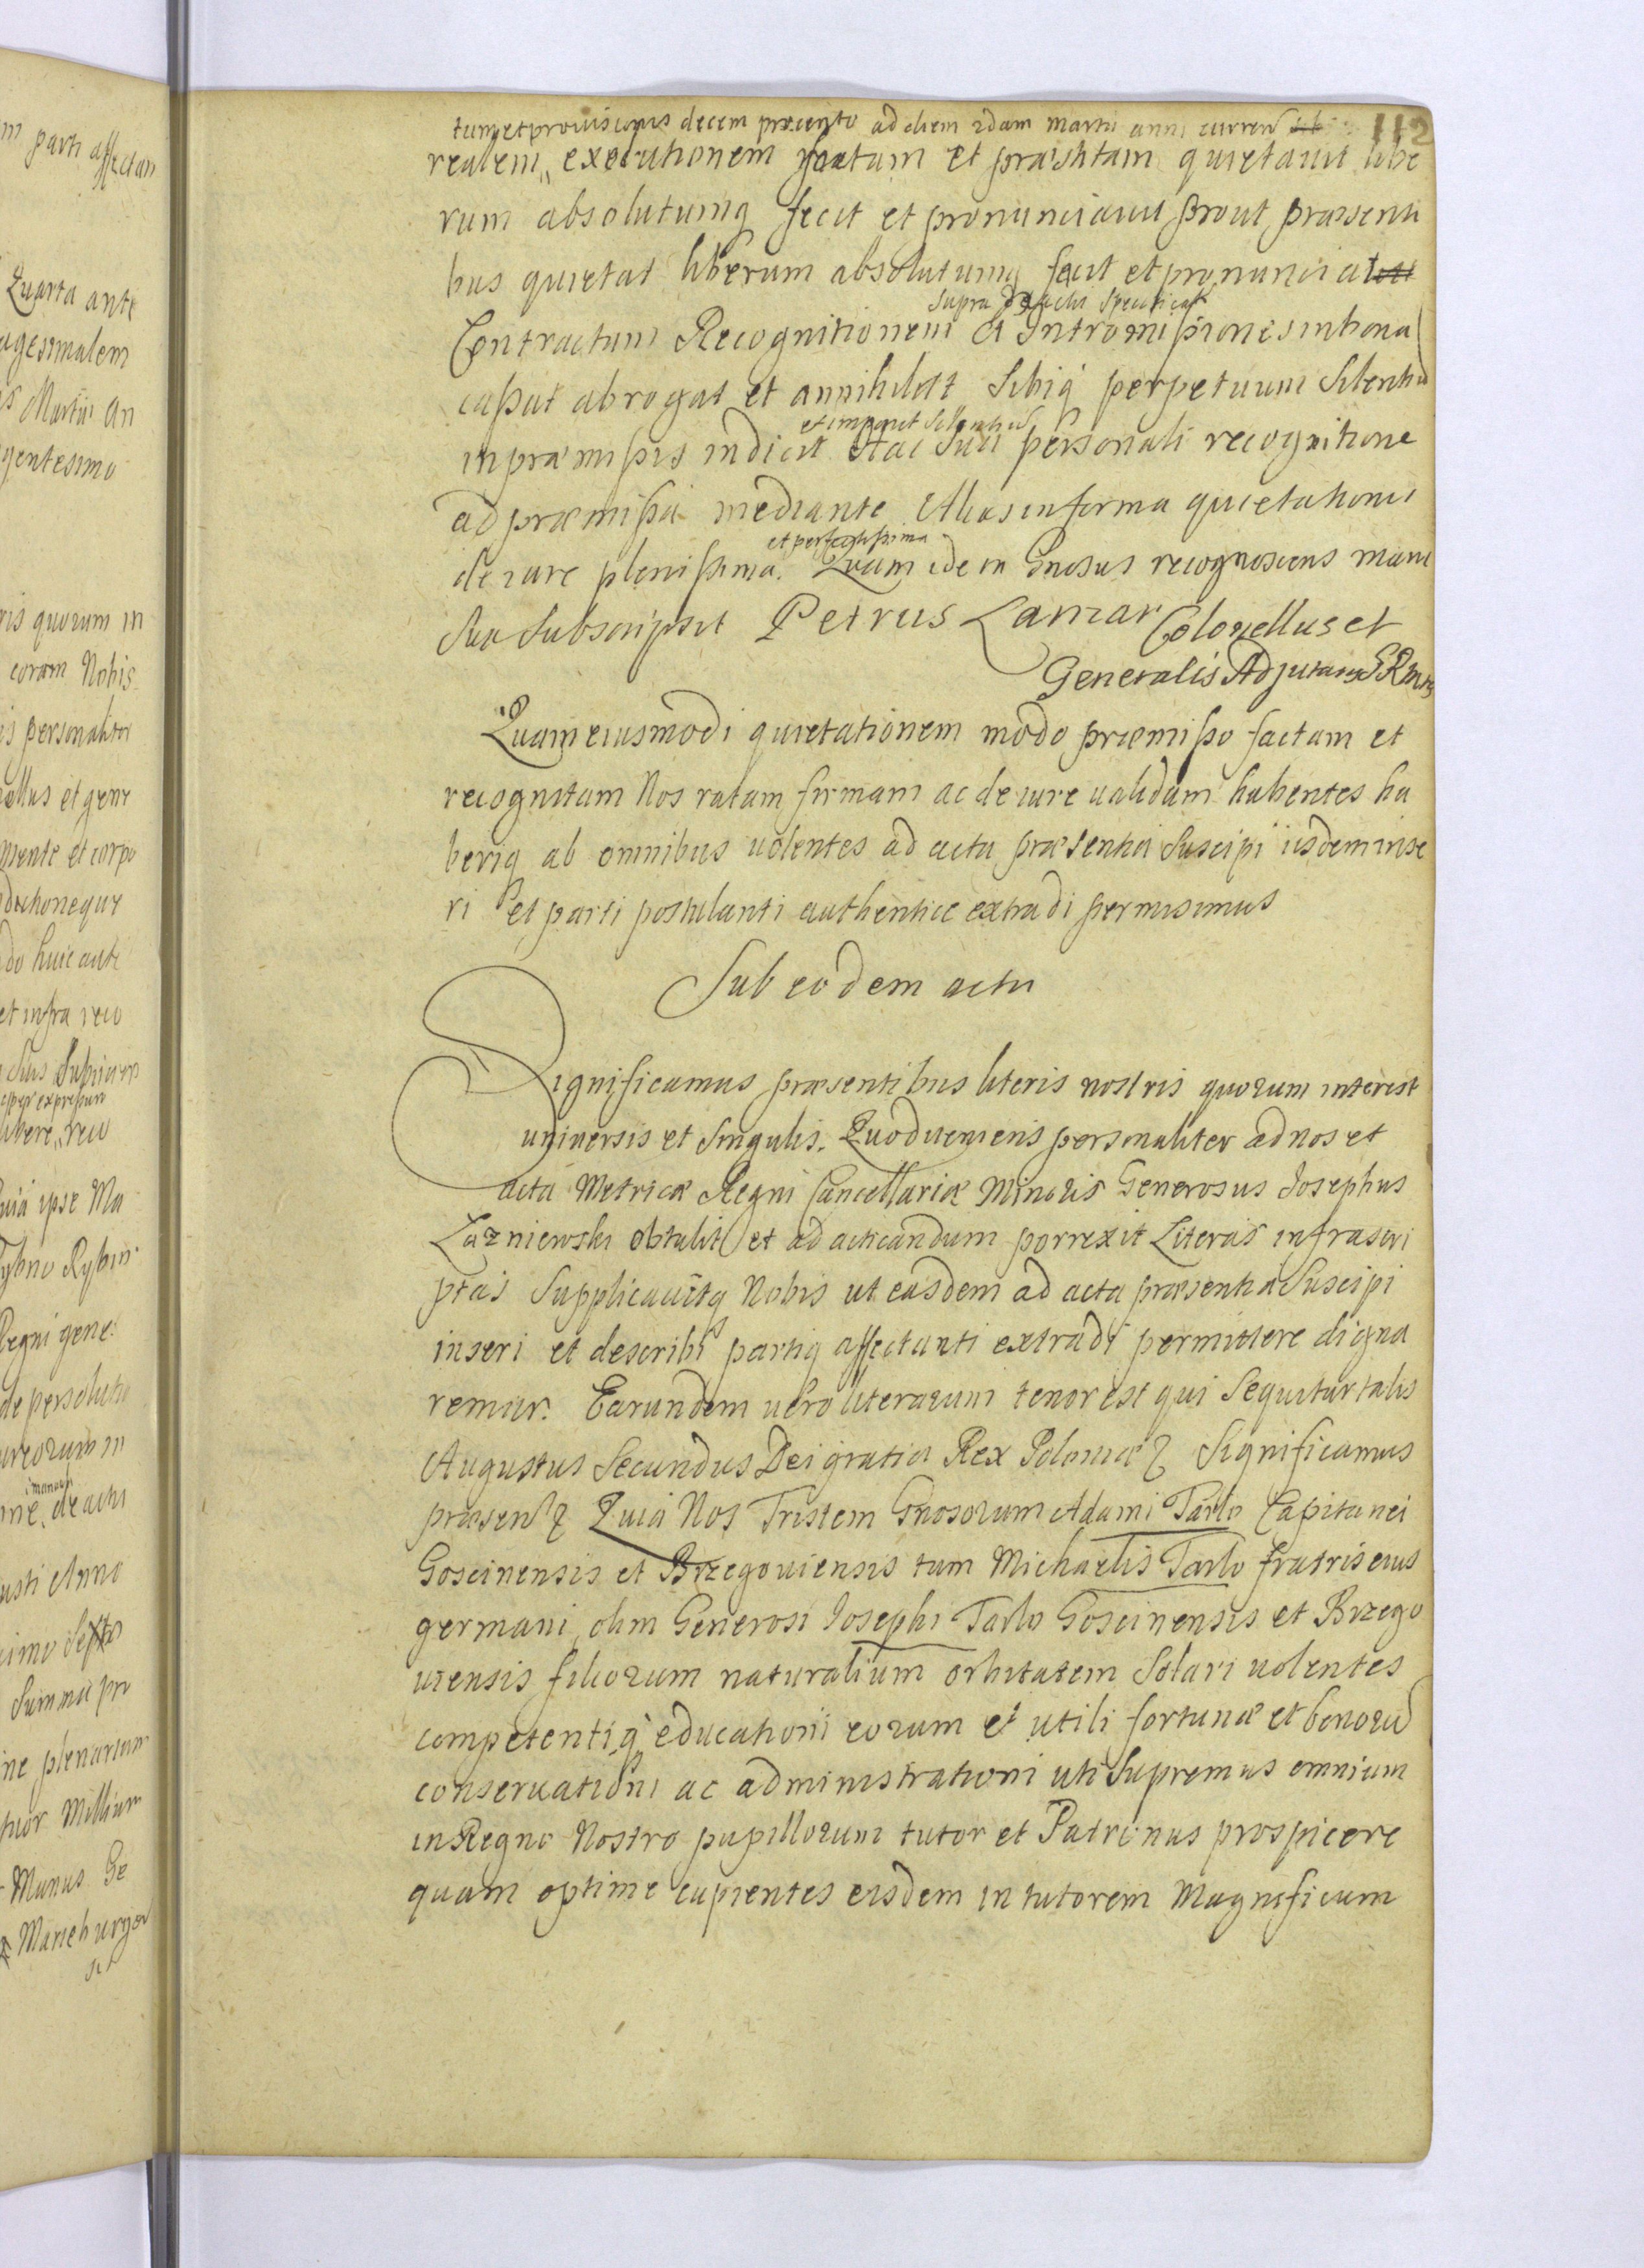 112
tum et prouisionis decem procento ad diem 2dam Martii anni curren
realem executionem factam et præstitam quietauit libe
rum absolutumq fecit et pronunciauit prout præsenti
bus quietat liberum absolutumq facit et pronunciat
supra de actu specificat
Contractum Recognitionem et Intromissiones
cassat abrogat et annihilat sibiq perpetuum silentiu
et imponit silentiu
in præmissis indicit Hac sui personali recognitione
ad præmissa mediante Alias in forma quietationis
et perfectissima
de iure plenissima. Quam idem Gnosus recognoscens manu
sua subscripsit Petrus Lanzar Colonellus et
Generalis Adjutans S R Mtis
Quam eiusmodi quietationem modo præmisso factam et
recognitam Nos ratam firmam ac de iure ualidam habentes ha
beriq ab omnibus uolentes ad acta præsentia suscipi iisdem inse
ri et parti postulanti authentice extradi permisimus
Sub eodem actu
Significamus præsentibus literis nostris quorum interest
uniuersis et singulis. Quod ueniens personaliter ad nos et
acta Metricæ Regni Cancellariæ Minoris Generosus Josephus
Łazniewski obtulit et ad acticandum porrexit Literas infrascri
ptas Supplicauitq Nobis ut easdem ad acta præsentia Suscipi
inseri et describi partiq affectanti extradi permittere digna
remur. Earundem uero literarum tenor est qui sequitur talis
Augustus Secundus Dei gratia Rex Poloniæ Significamus
præsen Quia Nos Tristem Gnosorum Adami Tarlo Capitanei
Goscinensis et Brzegouiensis tum Michaelis Tarlo fratris eius
germani olim Generosi Josephi Tarlo Goscinensis et Brzego
uiensis filiorum naturalium orbitatem Solari uolentes
competentiq educationi eorum et utili fortunæ et bonoru
conseruationi ac administrationi uti Supremus omnium
in Regno Nostro pupillorum tutor et Patronus prospicere
quam optime cupientes eisdem in tutorem Magnificum